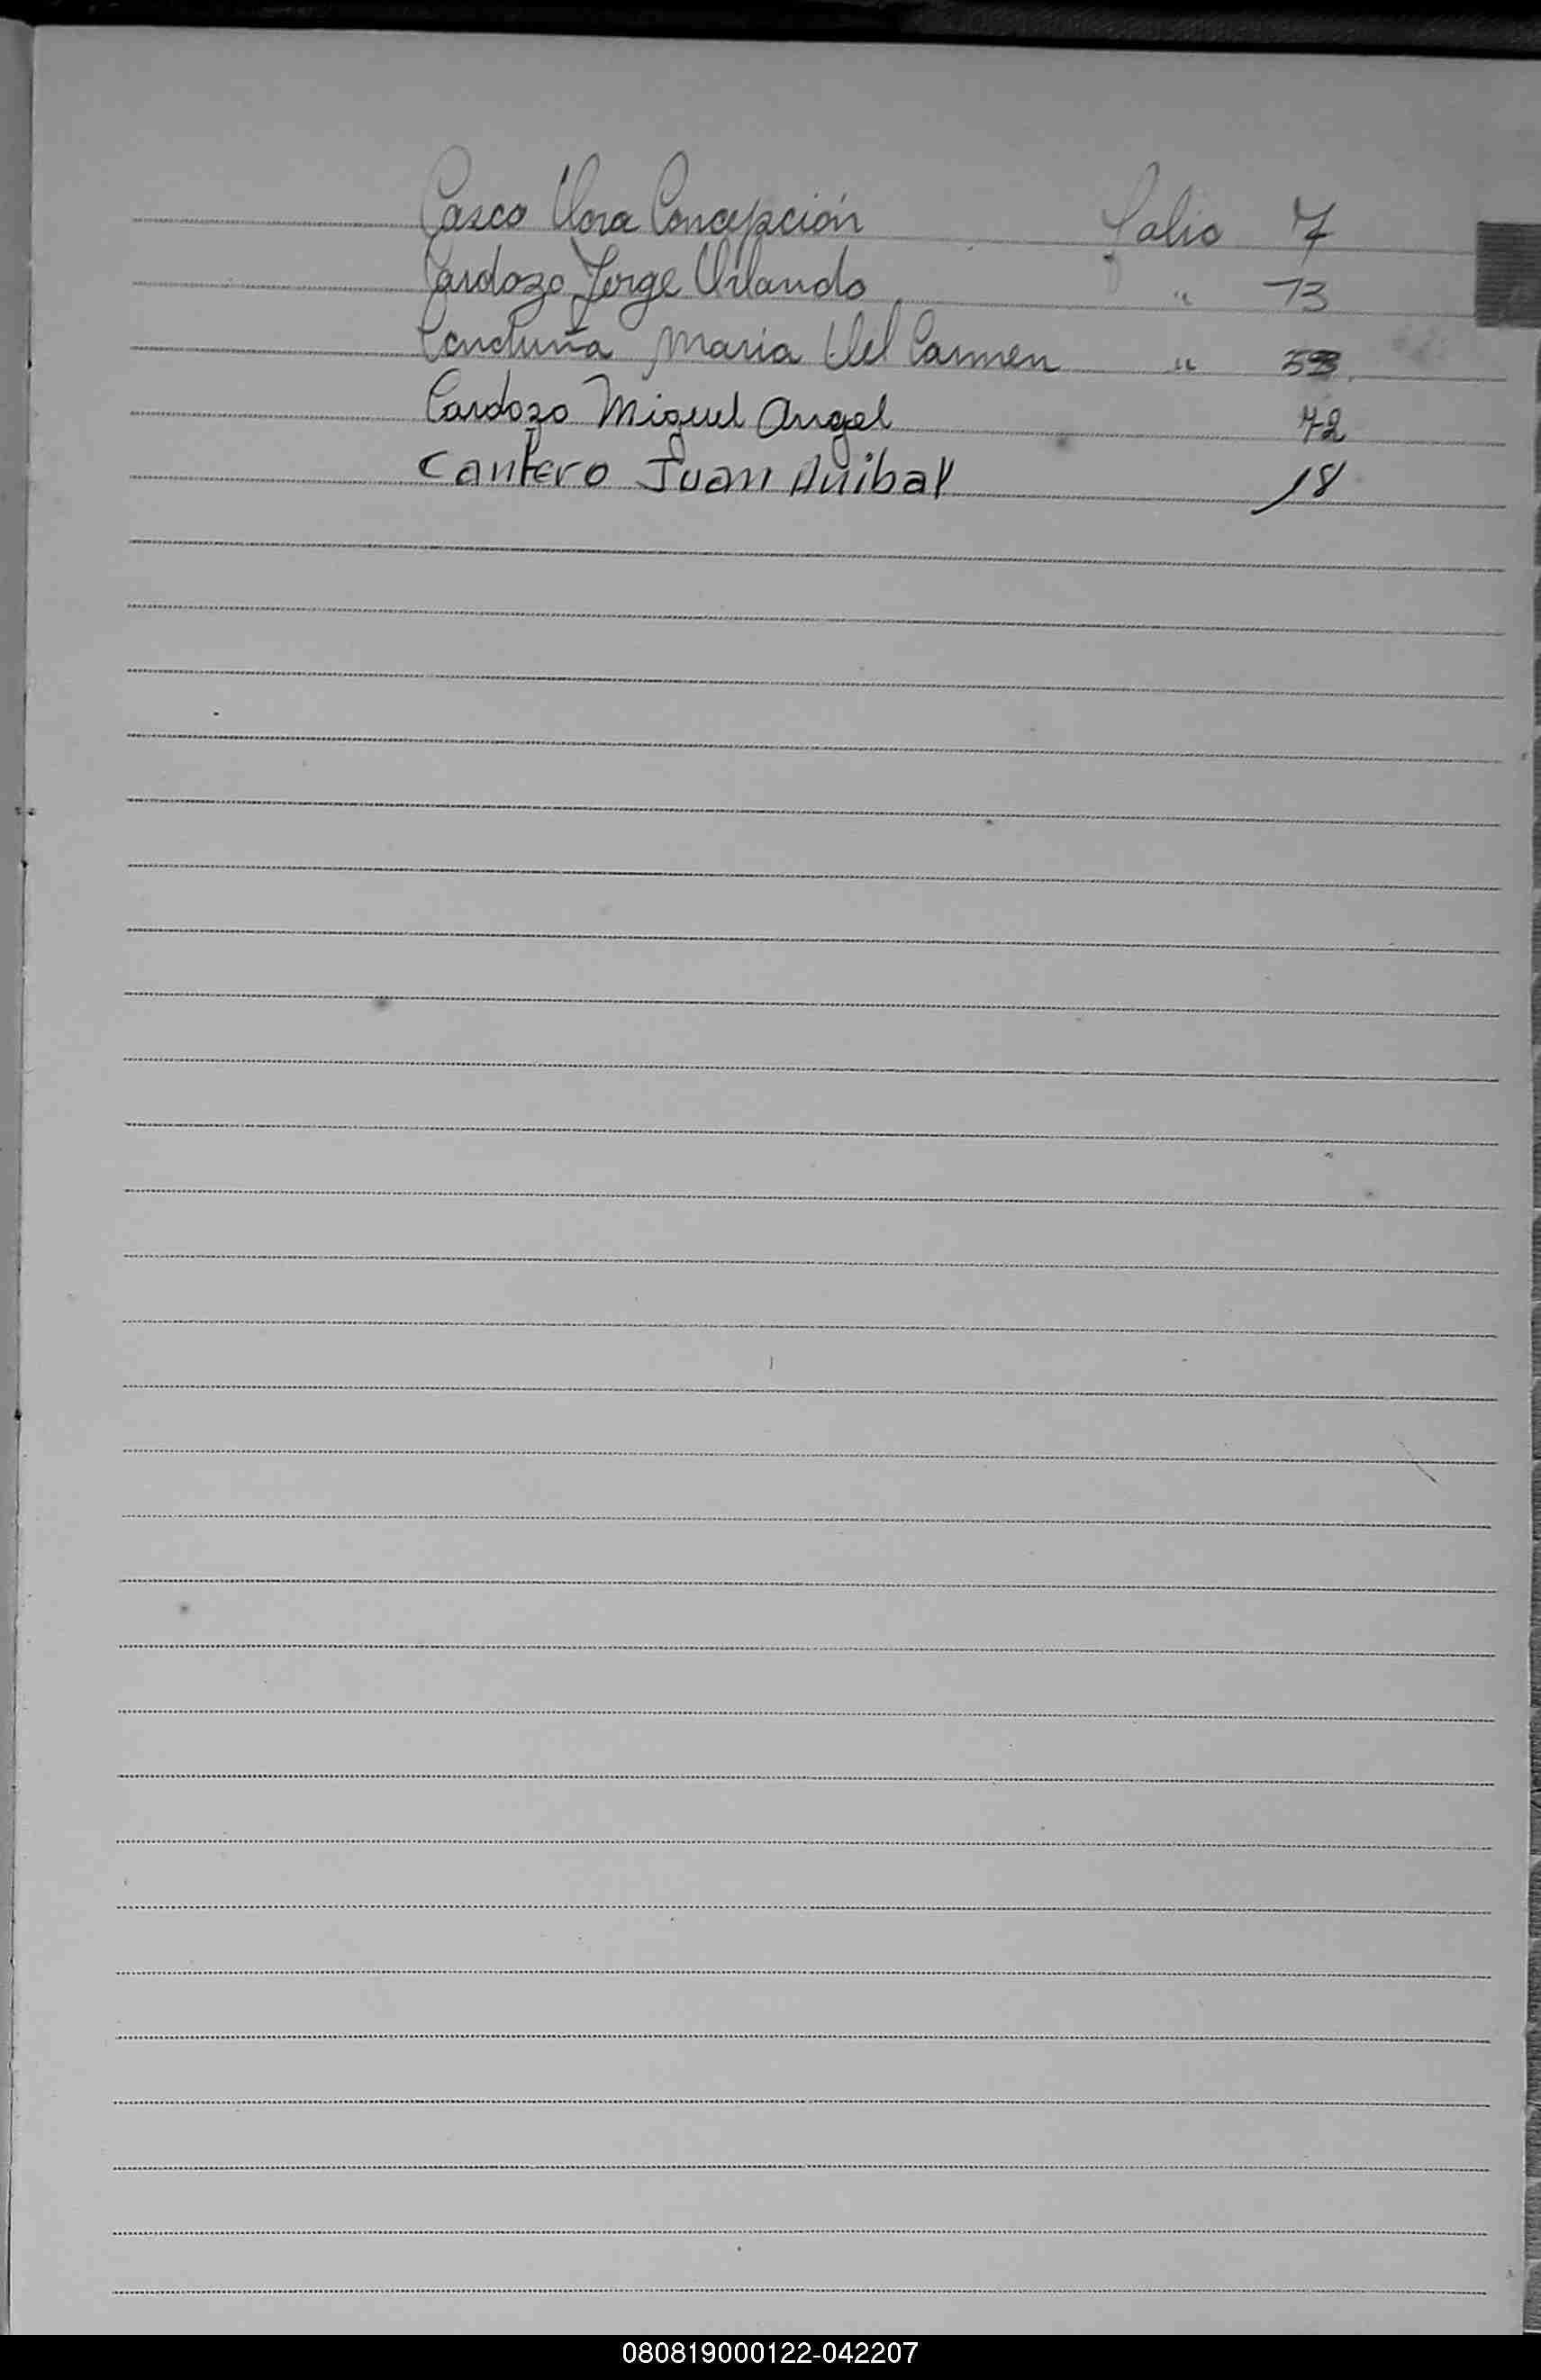 Casco Nora Concepción Folio 7
Cardozo Jorge Orlando " 13
Maria Del Carmen "
Cardozo Miguel Angel 72
Cantero Juan Anibal 18
080819000122-042207